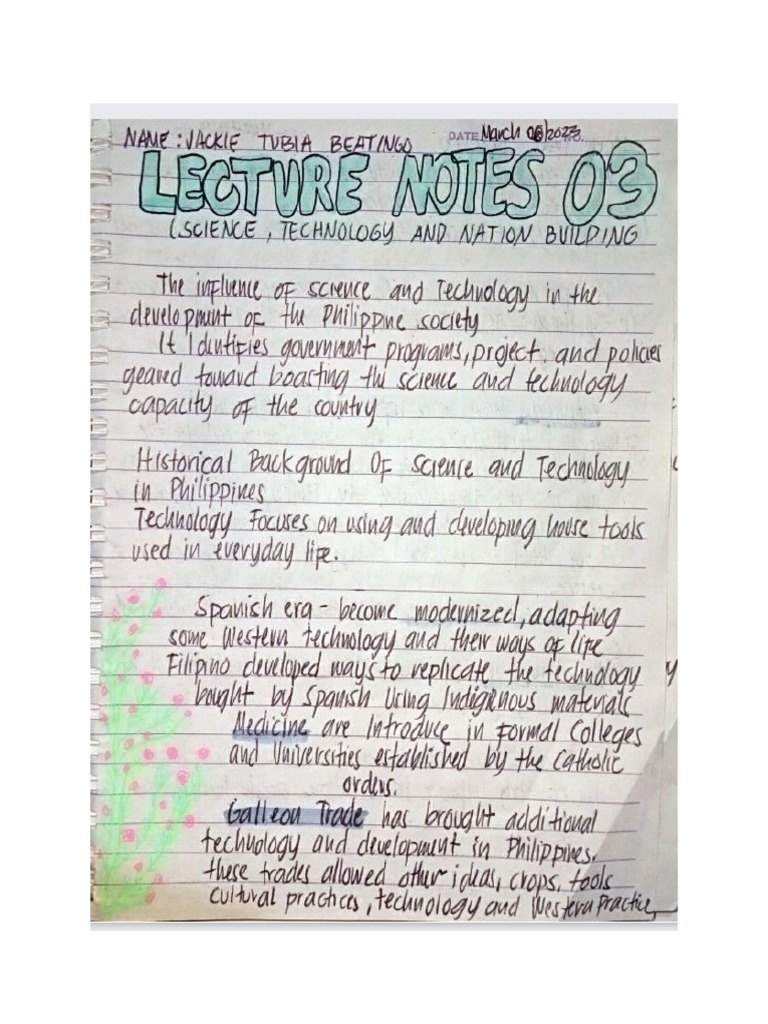 NAME: JACKIE TUBIA BEATINGO DATE March 06/2023
LECTURE NOTES 03
(SCIENCE, TECHNOLOGY AND NATION BUILDING
The influence of science and Technology in the
development of the Philippine society
It Identifies government programs, project and policies
geared toward boasting the science and technology
capacity of the country
Historical Background Of Science and Technology
in Philippines
Technology Focuses on using and developing house tools
used in everyday life.
Spanish era - become modernized, adapting
some Western technology and their ways of life
Filipino developed ways to replicate the technology
bought by Spanish Using Indigenous materials
Medicine are Introduce in Formal Colleges
and Universities established by the Catholic
orders.
Galleon Trade has brought additional
technology and development in Philippines.
these trades allowed other ideas, crops, tools
cultural practices, technology and Western Practice